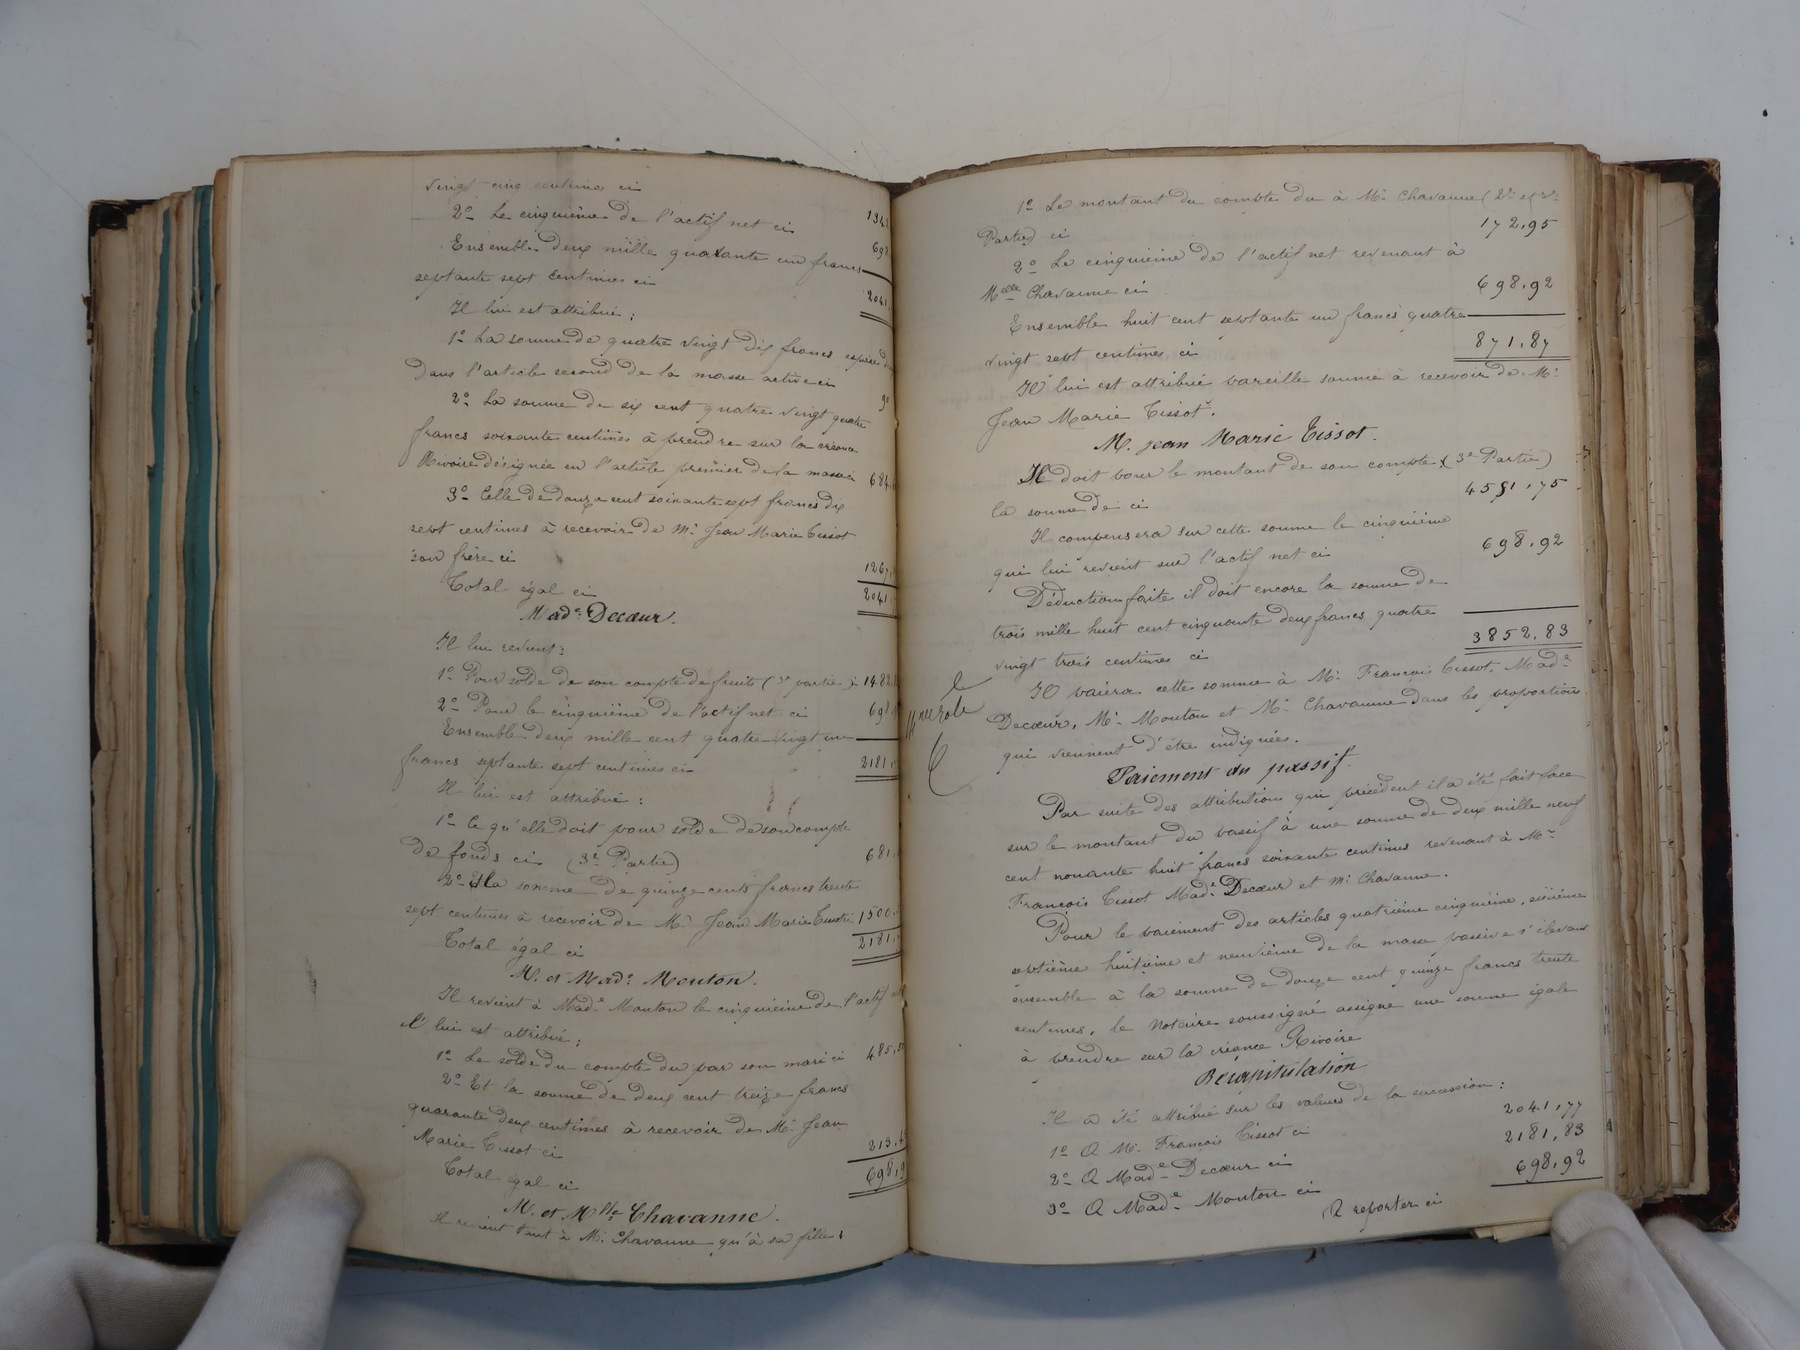 vingt cinq centimes ci
2º Le cinquième de l'actif net ci 698
Ensemble deux mille quarante un francs
septante sept centimes ci 2041
Il lui est attribué :
1º La somme de quatre vingt dix francs
dans l'article second de la masse active ci
2º La somme de six cent quatre vingt quatre
francs soixante centimes à prendre sur la créance
Rivoire désignée en l'article premier de la masse ci 684
3º Celle de douze cent soixante sept francs dix
sept centimes à recevoir de Mr Jean Marie Tissot
son frère ci 1267
Total égal ci 2041
Made Decœur.
Il lui revient :
1º Pour solde de son compte de fruits (3e partie) ci 1482
2º Pour le cinquième de l'actif net ci 698
Ensemble deux mille cent quatre vingt un
francs septante sept centimes ci 2181
Il lui est attribué :
1º Ce qu'elle doit pour solde de son compte
de fonds ci (3e Partie) 681
2º Et la somme de quinze cents francs trente
sept centimes à recevoir de Mr Jean Marie Tissot ci 1500
Total égal ci 2181
M. et Made Mouton.
Il revient à Made Mouton le cinquième de l'actif
Il lui est attribué :
1º Le solde du compte du par son mari ci 485,5
2º Et la somme de deux cent treize francs
quarante deux centimes à recevoir de Mr Jean
Marie Tissot ci 213,4
Total égal ci 698,9
M. et Mlle Chavanne.
Il revient tant à Mr Chavanne qu'à sa fille :
1º Le montant du compte du à Mr Chavanne (2e et 3e
Partie) ci 172,95
2º Le cinquième de l'actif net revenant à
Melle Chavanne ci 698,92
Ensemble huit cent septante un francs quatre
vingt sept centimes ci 871,87
Il lui est attribué pareille somme à recevoir de Mr
Jean Marie Tissot.
M. Jean Marie Tissot.
Il doit pour le montant de son compte (3e Partie)
la somme de ci 4551,75
Il compensera sur cette somme le cinquième
qui lui revient sur l'actif net ci 698,92
Déduction faite il doit encore la somme de
trois mille huit cent cinquante deux francs quatre
vingt trois centimes ci 3852,83
Il paiera cette somme à Mr François Tissot, Made
Decœur, Mr Mouton et Mr Chavanne dans les proportions
qui viennent d'être indiquées.
Paiement du passif.
Par suite des attributions qui précèdent il a été fait face
sur le montant du passif à une somme de deux mille neuf
cent nonante huit francs soixante centimes revenant à Mr
François Tissot Made Decœur et Mr Chavanne.
Pour le paiement des articles quatrième cinquième, sixième
septième huitième et neuvième de la masse passive s'élevant
ensemble à la somme de douze cent quinze francs trente
centimes, le Notaire soussigné assigne une somme égale
à prendre sur la créance Rivoire
Récapitulation
Il a été attribué sur les valeurs de la succession :
1º A Mr François Tissot ci 2041,77
2º A Made Decœur ci 2181,83
3º A Made Mouton ci 698,92
A reporter ci